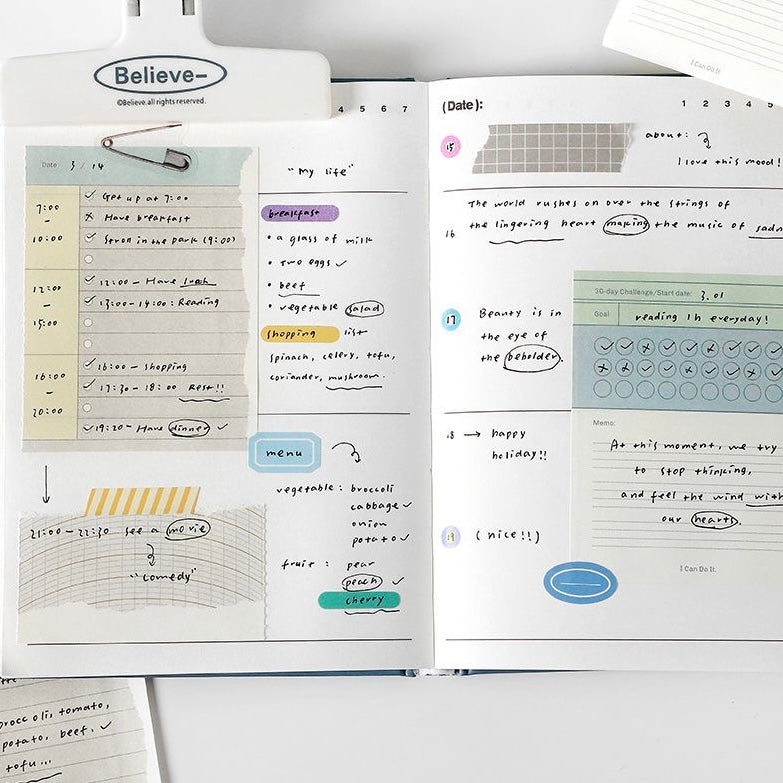 Believe–
©Believe.all rights reserved.
4 5 6 7
Date 3 / 14
7:00
–
10:00
Get up at 7:00
Have breakfast
12:00
–
15:00
12:00 – Have lunch
13:00–14:00: Reading
16:00
–
20:00
16:00 – shopping
17:30 – 18:00 Rest!!
19:20 – Have dinner
21:00–22:30 see a movie
"comedy"
"My life"
breakfast
• a glass of milk
• two eggs
• beef
• vegetable salad
shopping list
spinach, celery, tofu,
coriander, mushroom.
menu
vegetable: broccoli
cabbage
onion
potato
fruit: pear
peach
cherry
broccoli, tomato,
potato, beef.
tofu...
(Date):
1 2 3 4 5
15
about:
I love this mood!
16
The world rushes on over the strings of
the lingering heart making the music of
17
Beauty is in
the eye of
the beholder.
18 → happy
holiday!!
19
(nice!!)
30-day Challenge/Start date: 3.01
Goal reading 1h everyday!
Memo:
At this moment, we try
to stop thinking,
and feel the wind with
our hearts.
I Can Do It.
I Can Do It